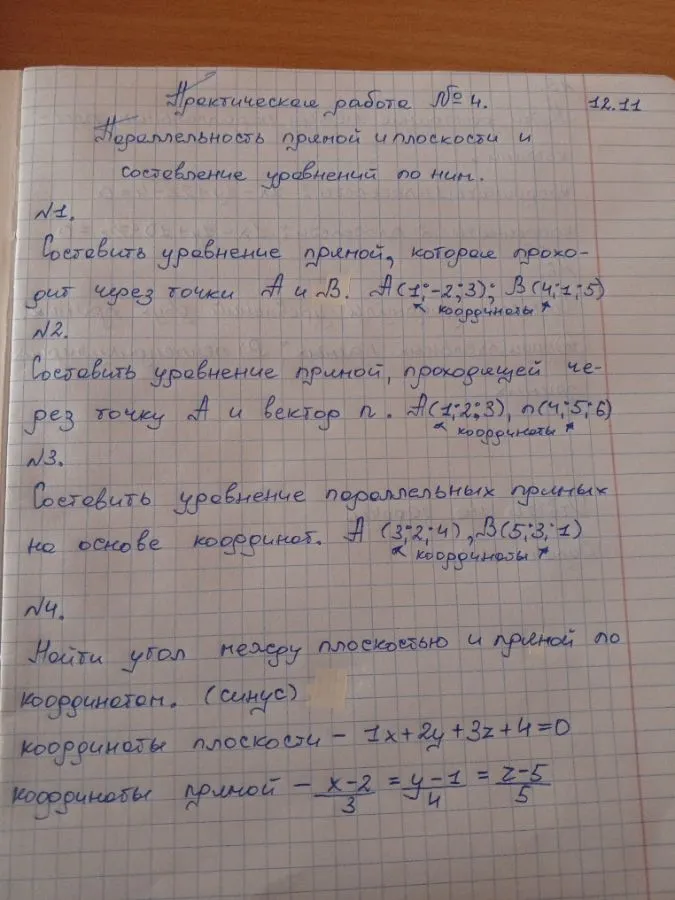 Практическая работа №4. 12.11
Параллельность прямой и плоскости и
составление уравнений по ним.
№1.
Составить уравнение прямой, которая прохо-
дит через точки A и B. A(1;-2;3); B(4;1;5)
координаты
№2.
Составить уравнение прямой, проходящей че-
рез точку A и вектор n. A(1;2;3), n(4;5;6)
координаты
№3.
Составить уравнение параллельных прямых
на основе координат. A (3;2;4), B(5;3;1)
координаты
№4.
Найти угол между плоскостью и прямой по
координатам. (синус)
координаты плоскости - 1x+2y+3z+4=0
координаты прямой - x-2/3 = y-1/4 = z-5/5